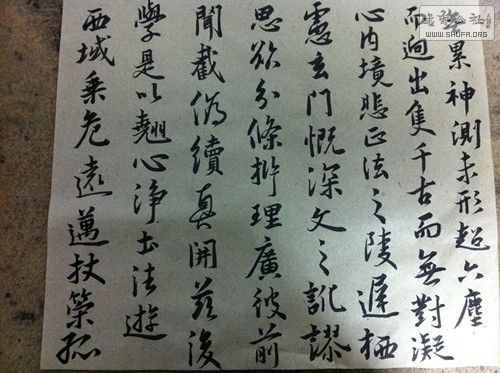 累神測未形超六塵
而迥出隻千古而無對凝
心內境悲正法之陵遲栖
慮玄門慨深文之訛謬
思欲分條析理廣彼前
聞截偽續真開茲後
學是以翹心淨土法遊
西域乘危遠邁杖策孤
WWW.SHUFA.ORG